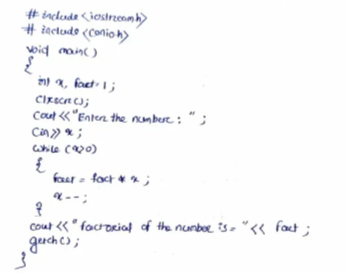 # include <iostream.h>
# include <conio.h>
void main()
{
int x, fact=1;
clrscr();
cout<<"Enter the number: ";
cin>>x;
while (x>0)
{
fact = fact * x;
x--;
}
cout<<"factorial of the number is = "<< fact;
getch();
}